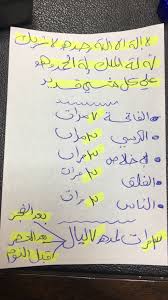 لا اله الا الله وحده لا شريك
له له الملك وله الحمد وهو
على كل شيء قدير
الفاتحة ٧ مرات
الكرسي ٣ مرات
الاخلاص ٣ مرات
الفلق ٣ مرات
الناس ٣ مرات
بعد الفجر
بعد العصر
قبل النوم
٣ مرات لمدة ٧ ليال